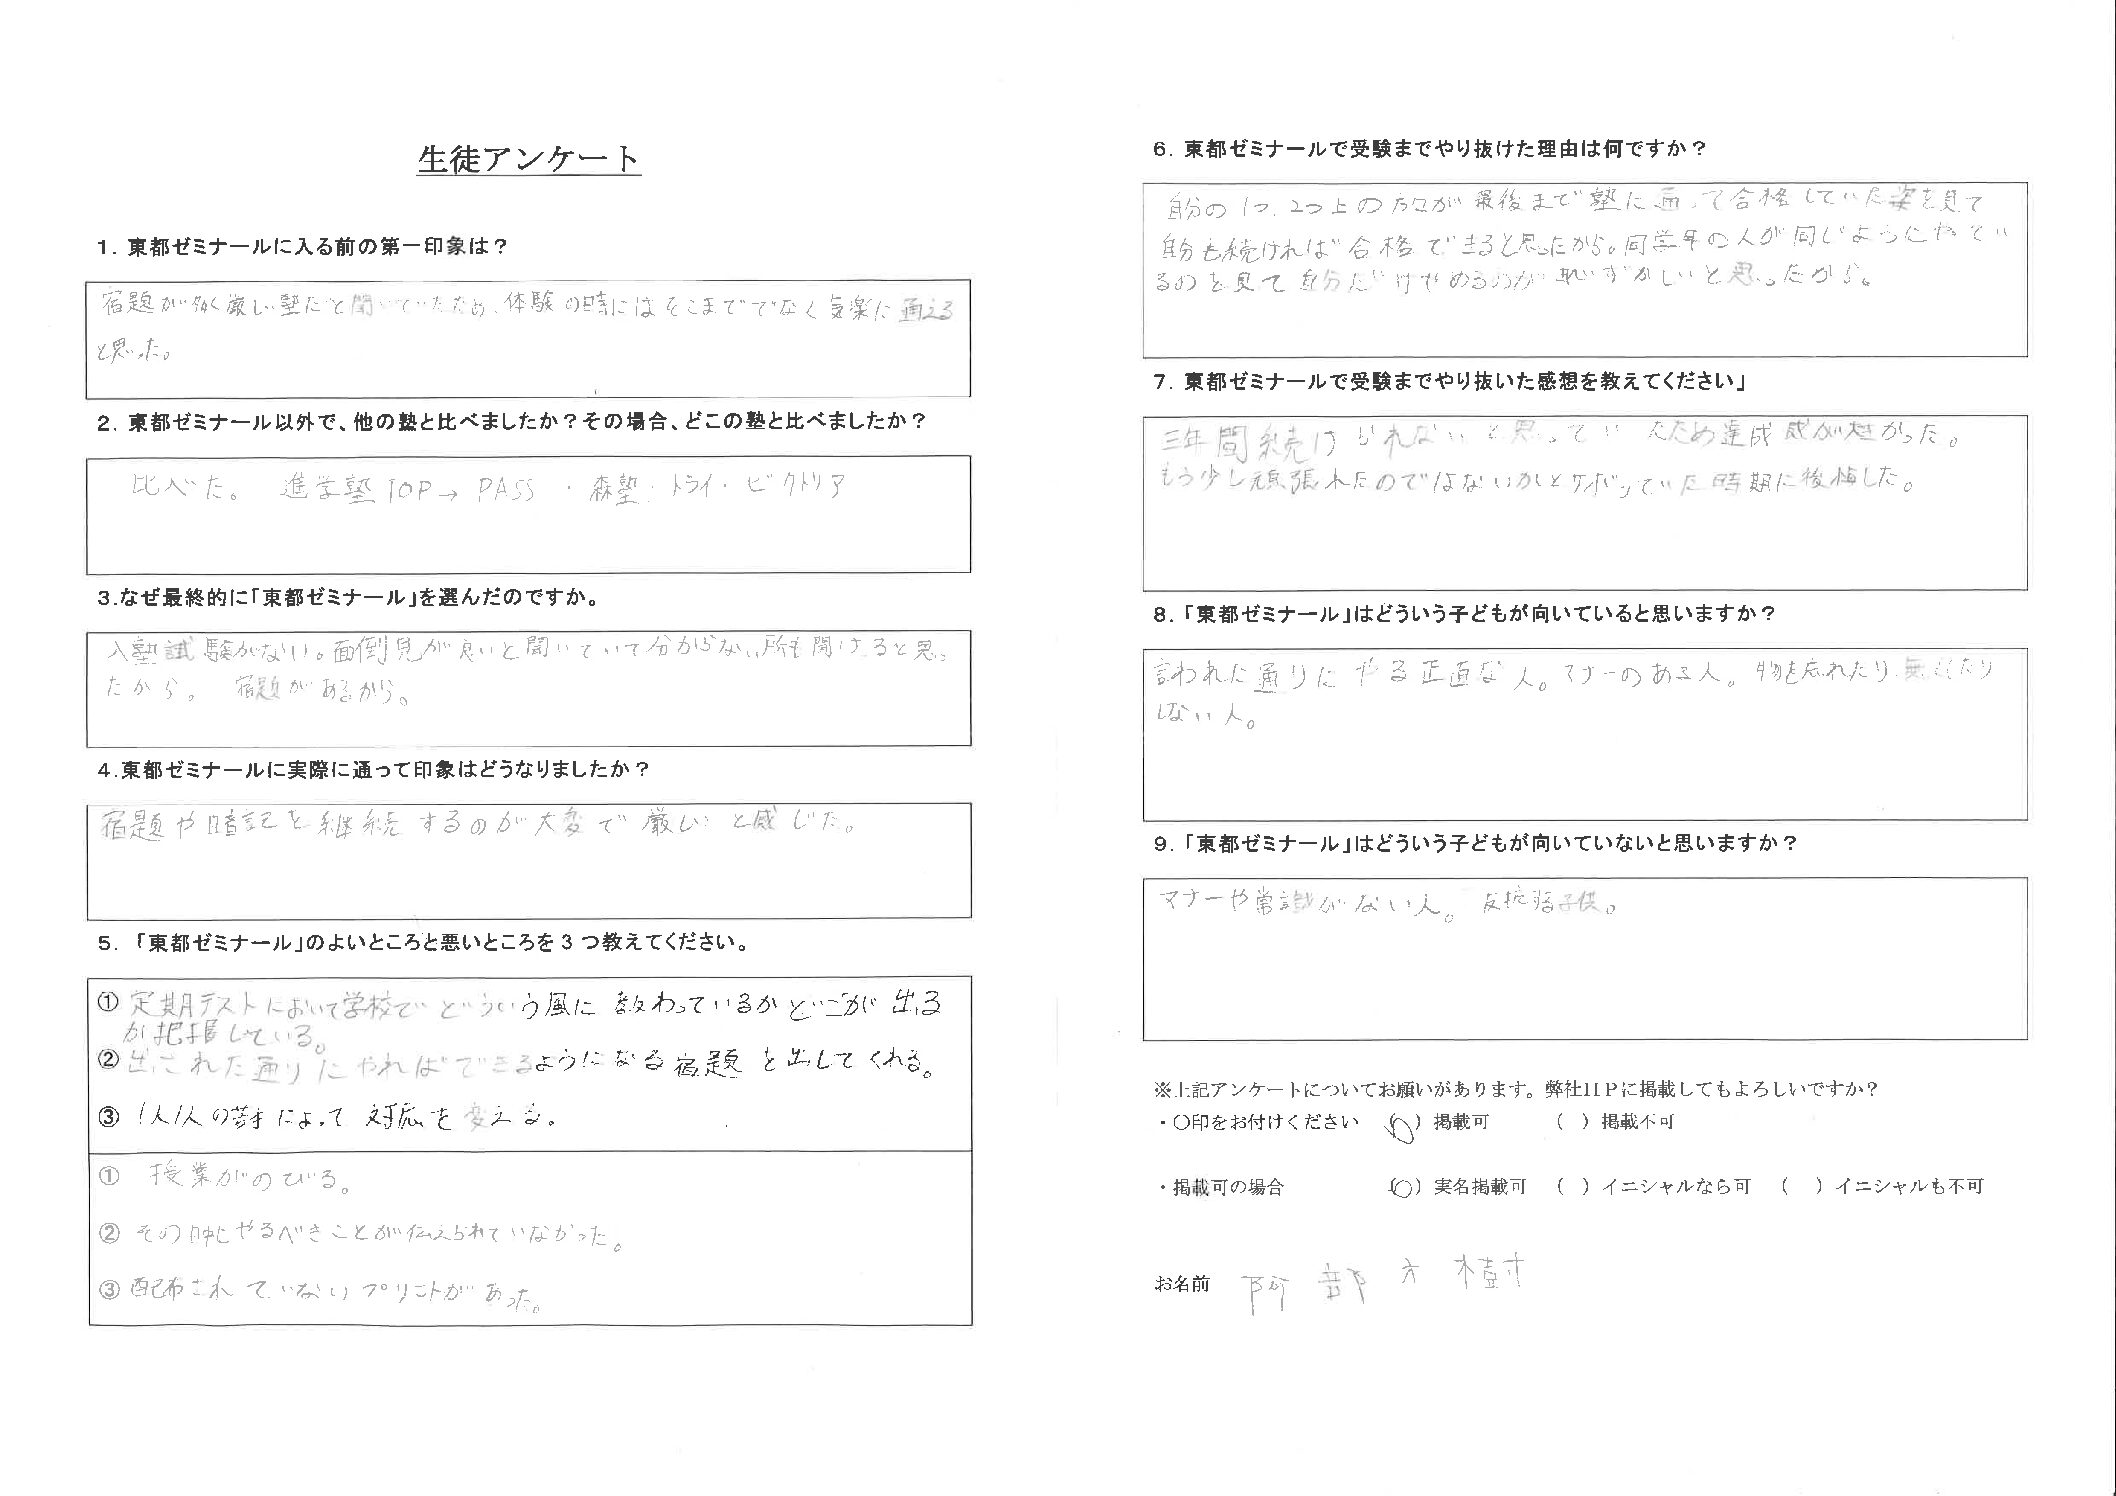 生徒アンケート
1. 東都ゼミナールに入る前の第一印象は？
宿題が多く厳しい塾だと聞いていたため、体験の時にはそこまででなく気楽に通える
と思った。
2. 東都ゼミナール以外で、他の塾と比べましたか？その場合、どこの塾と比べましたか？
比べた。 進学塾TOP→PASS ・森塾・トライ・ビクトリア
3.なぜ最終的に｢東都ゼミナール｣を選んだのですか。
入塾試験がない。面倒見が良いと聞いていて分からない所も聞けると思っ
たから。 宿題があるから。
4.東都ゼミナールに実際に通って印象はどうなりましたか？
宿題や暗記を継続するのが大変で厳しいと感じた。
5. ｢東都ゼミナール｣のよいところと悪いところを3つ教えてください。
① 定期テストにおいて学校でどういう風に教わっているかどこが出る
か把握している。
② 出された通りにやればできるようになる宿題を出してくれる。
③ 1人1人の苦手によって対応を変える。
① 授業がのびる。
② その時にやるべきことが伝えられていなかった。
③ 配布されていないプリントがあった。
6. 東都ゼミナールで受験までやり抜けた理由は何ですか？
自分の1つ、2つ上の方々が最後まで塾に通って合格していた姿を見て
自分も続ければ合格できると思ったから。同学年の人が同じようにやってい
るのを見て自分だけやめるのが恥ずかしいと思ったから。
7. 東都ゼミナールで受験までやり抜いた感想を教えてください｣
三年間続けられないと思っていたため達成感が大きかった。
もう少し頑張れたのではないかとサボっていた時期に後悔した。
8.｢東都ゼミナール｣はどういう子どもが向いていると思いますか？
言われた通りにやる正直な人。マナーのある人。物を忘れたり無くしたり
しない人。
9.｢東都ゼミナール｣はどういう子どもが向いていないと思いますか？
マナーや常識がない人。 反抗する子供。
※上記アンケートについてお願いがあります。弊社HPに掲載してもよろしいですか？
・〇印をお付けください (〇) 掲載可 ( ) 掲載不可
・掲載可の場合 (〇) 実名掲載可 ( ) イニシャルなら可 ( ) イニシャルも不可
お名前 阿部 方樹